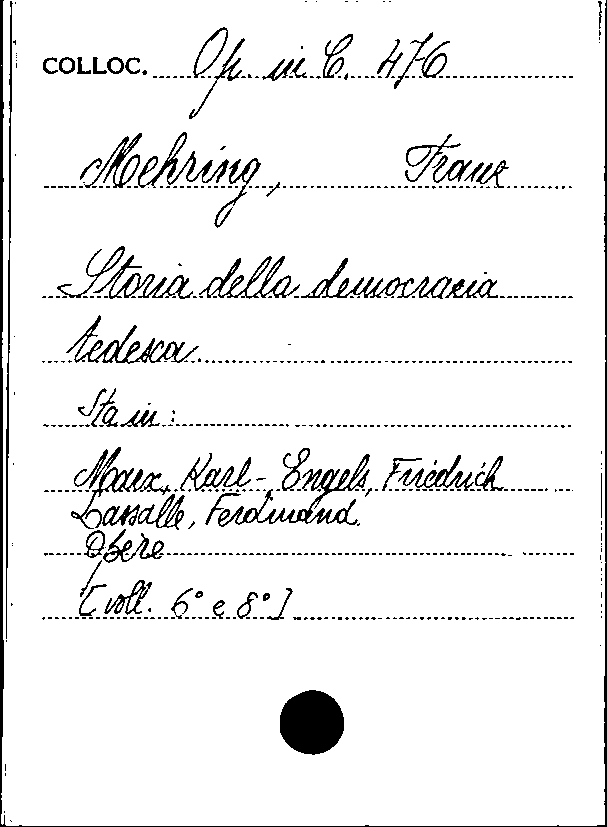 COLLOC. Op. in C. 476
Mehring, Franz
Storia della democrazia
tedesca.
Sta in:
Marx, Karl - Engels, Friedrich
Lassalle, Ferdinand.
Opere
[voll. 6° e 8°]